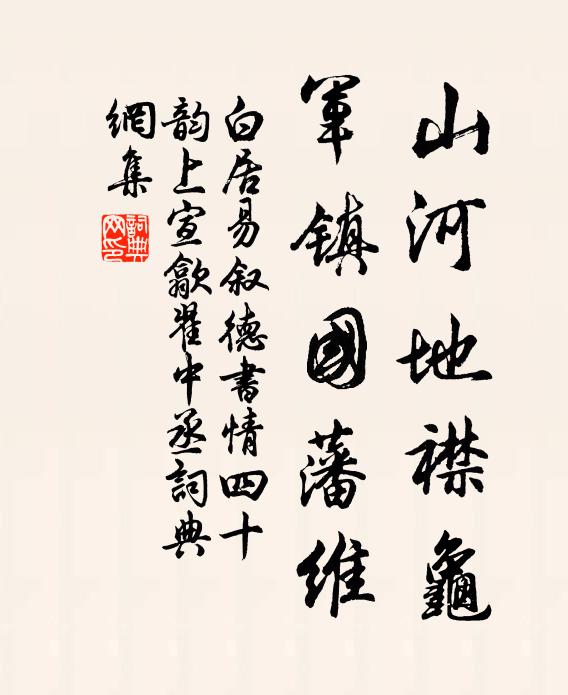 山河地襟龜
軍鎮國藩維
白居易叙德書情四十
韵上宣歙翟中丞詞典
網集
詞典網印